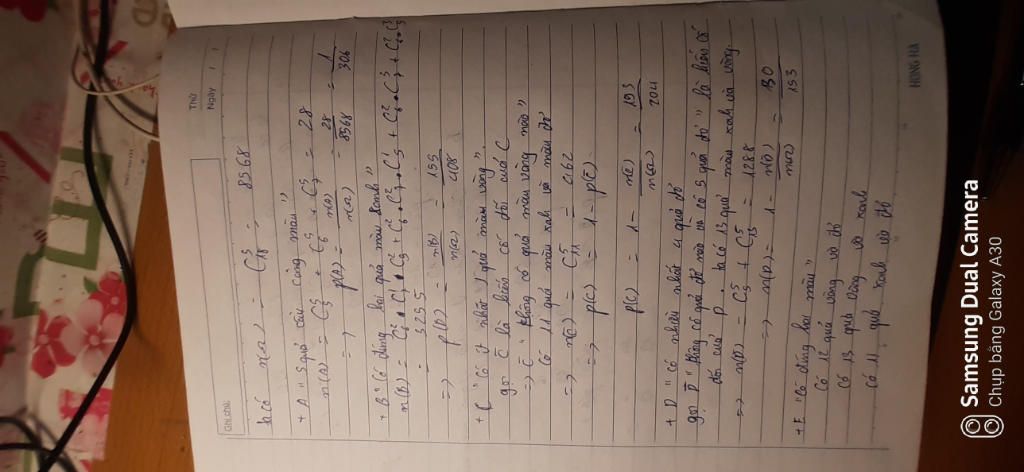 Thứ
Ngày
Ghi chú:
ta có n(Ω) = C⁵₁₈ = 8568
+ A " 5 quả cầu cùng màu "
n(A) = C⁵₅ + C⁵₆ + C⁵₇ = 28
=> p(A) = n(A)/n(Ω) = 28/8568 = 1/306
+ B " Có đúng hai quả màu Xanh "
= 3255
=> p(B) = n(B)/n(Ω) = 155/408
+ C " Có ít nhất 1 quả màu vàng "
gọi C̅ là biến cố đối của C
=> C̅ " không có quả màu vàng nào "
Có 11 quả màu xanh và màu đỏ
=> n(C̅) = C⁵₁₁ = 462
=> p(C) = 1 - p(C̅)
p(C) = 1 - n(C̅)/n(Ω) = 193/204
+ D " có nhiều nhất 4 quả đỏ
gọi D̅ " không có quả đỏ nào và có 5 quả đỏ " là biến cố
đối của D, ta có 13 quả màu xanh và vàng
=> n(D̅) = C⁵₅ + C⁵₁₃ = 1288
=> n(D) = 1 - n(D̅)/n(Ω) = 130/153
+ E " Có đúng hai màu "
Có 12 quả vàng và đỏ
Có 13 quả vàng và xanh
Có 11 quả xanh và đỏ
HONG HA
Samsung Dual Camera
Chụp bằng Galaxy A30